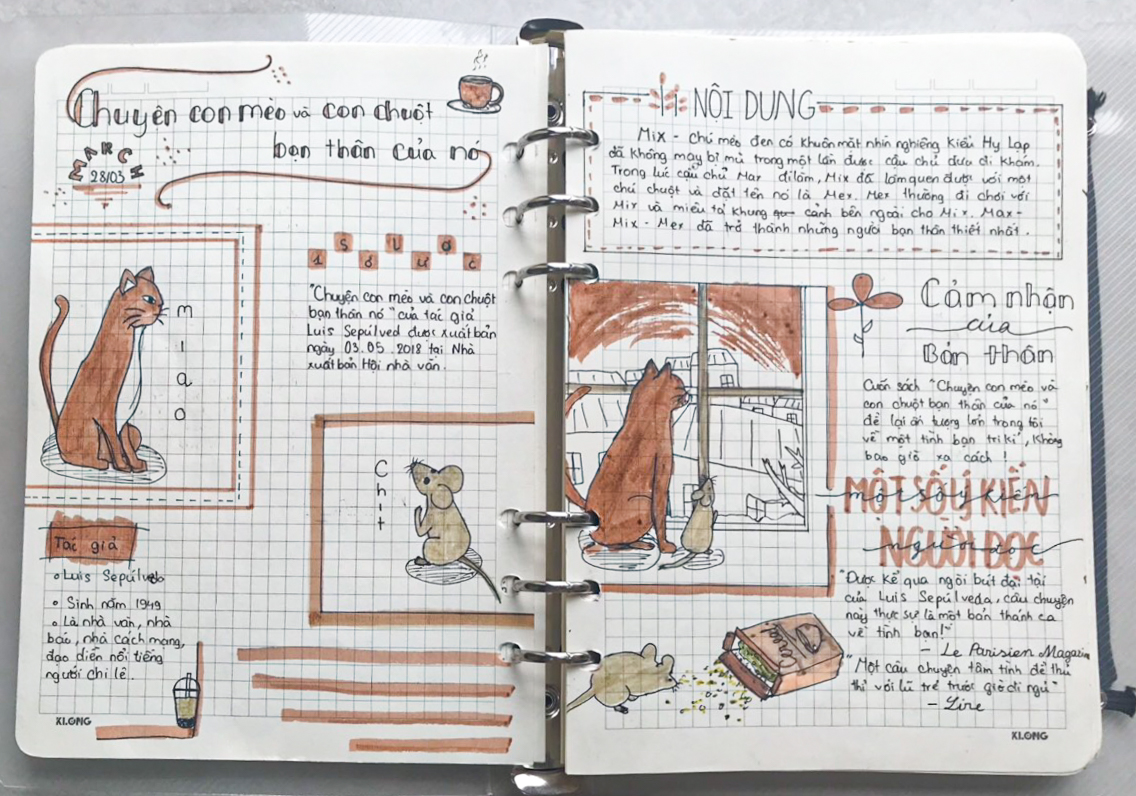 Chuyện con mèo và con chuột
bạn thân của nó
MARCH
28/03
sơ lược
"Chuyện con mèo và con chuột
bạn thân nó" của tác giả
Luis Sepúlved được xuất bản
ngày 03.05.2018 tại Nhà
xuất bản Hội nhà văn.
miao
Chit
Tác giả
Luis Sepúlveda
Sinh năm 1949
Là nhà văn, nhà
báo, nhà cách mạng,
đạo diễn nổi tiếng
người chi lê.
KLONG
NỘI DUNG
Mix - chú mèo đen có khuôn mặt nhìn nghiêng kiểu Hy Lạp
đã không may bị mù trong một lần được cậu chủ đưa đi khám.
Trong lúc cậu chủ Max đi làm, Mix đã làm quen được với một
chú chuột và đặt tên nó là Mex. Mex thường đi chơi với
Mix và miêu tả khung cảnh bên ngoài cho Mix. Max-
Mix - Mex đã trở thành những người bạn thân thiết nhất.
Cảm nhận
của
Bản thân
Cuốn sách "Chuyện con mèo và
con chuột bạn thân của nó"
để lại ấn tượng lớn trong tôi
về một tình bạn tri kỉ, không
bao giờ xa cách!
MỘT SỐ Ý KIẾN
một số ý kiến
NGƯỜI ĐỌC
người đọc
"Được kể qua ngòi bút đại tài
của Luis Sepúlveda, câu chuyện
này thực sự là một bản thánh ca
về tình bạn!"
- Le Parisien Magazin
"Một câu chuyện tâm tình để thủ
thỉ với lũ trẻ trước giờ đi ngủ"
- Lire
Cereal
KLONG